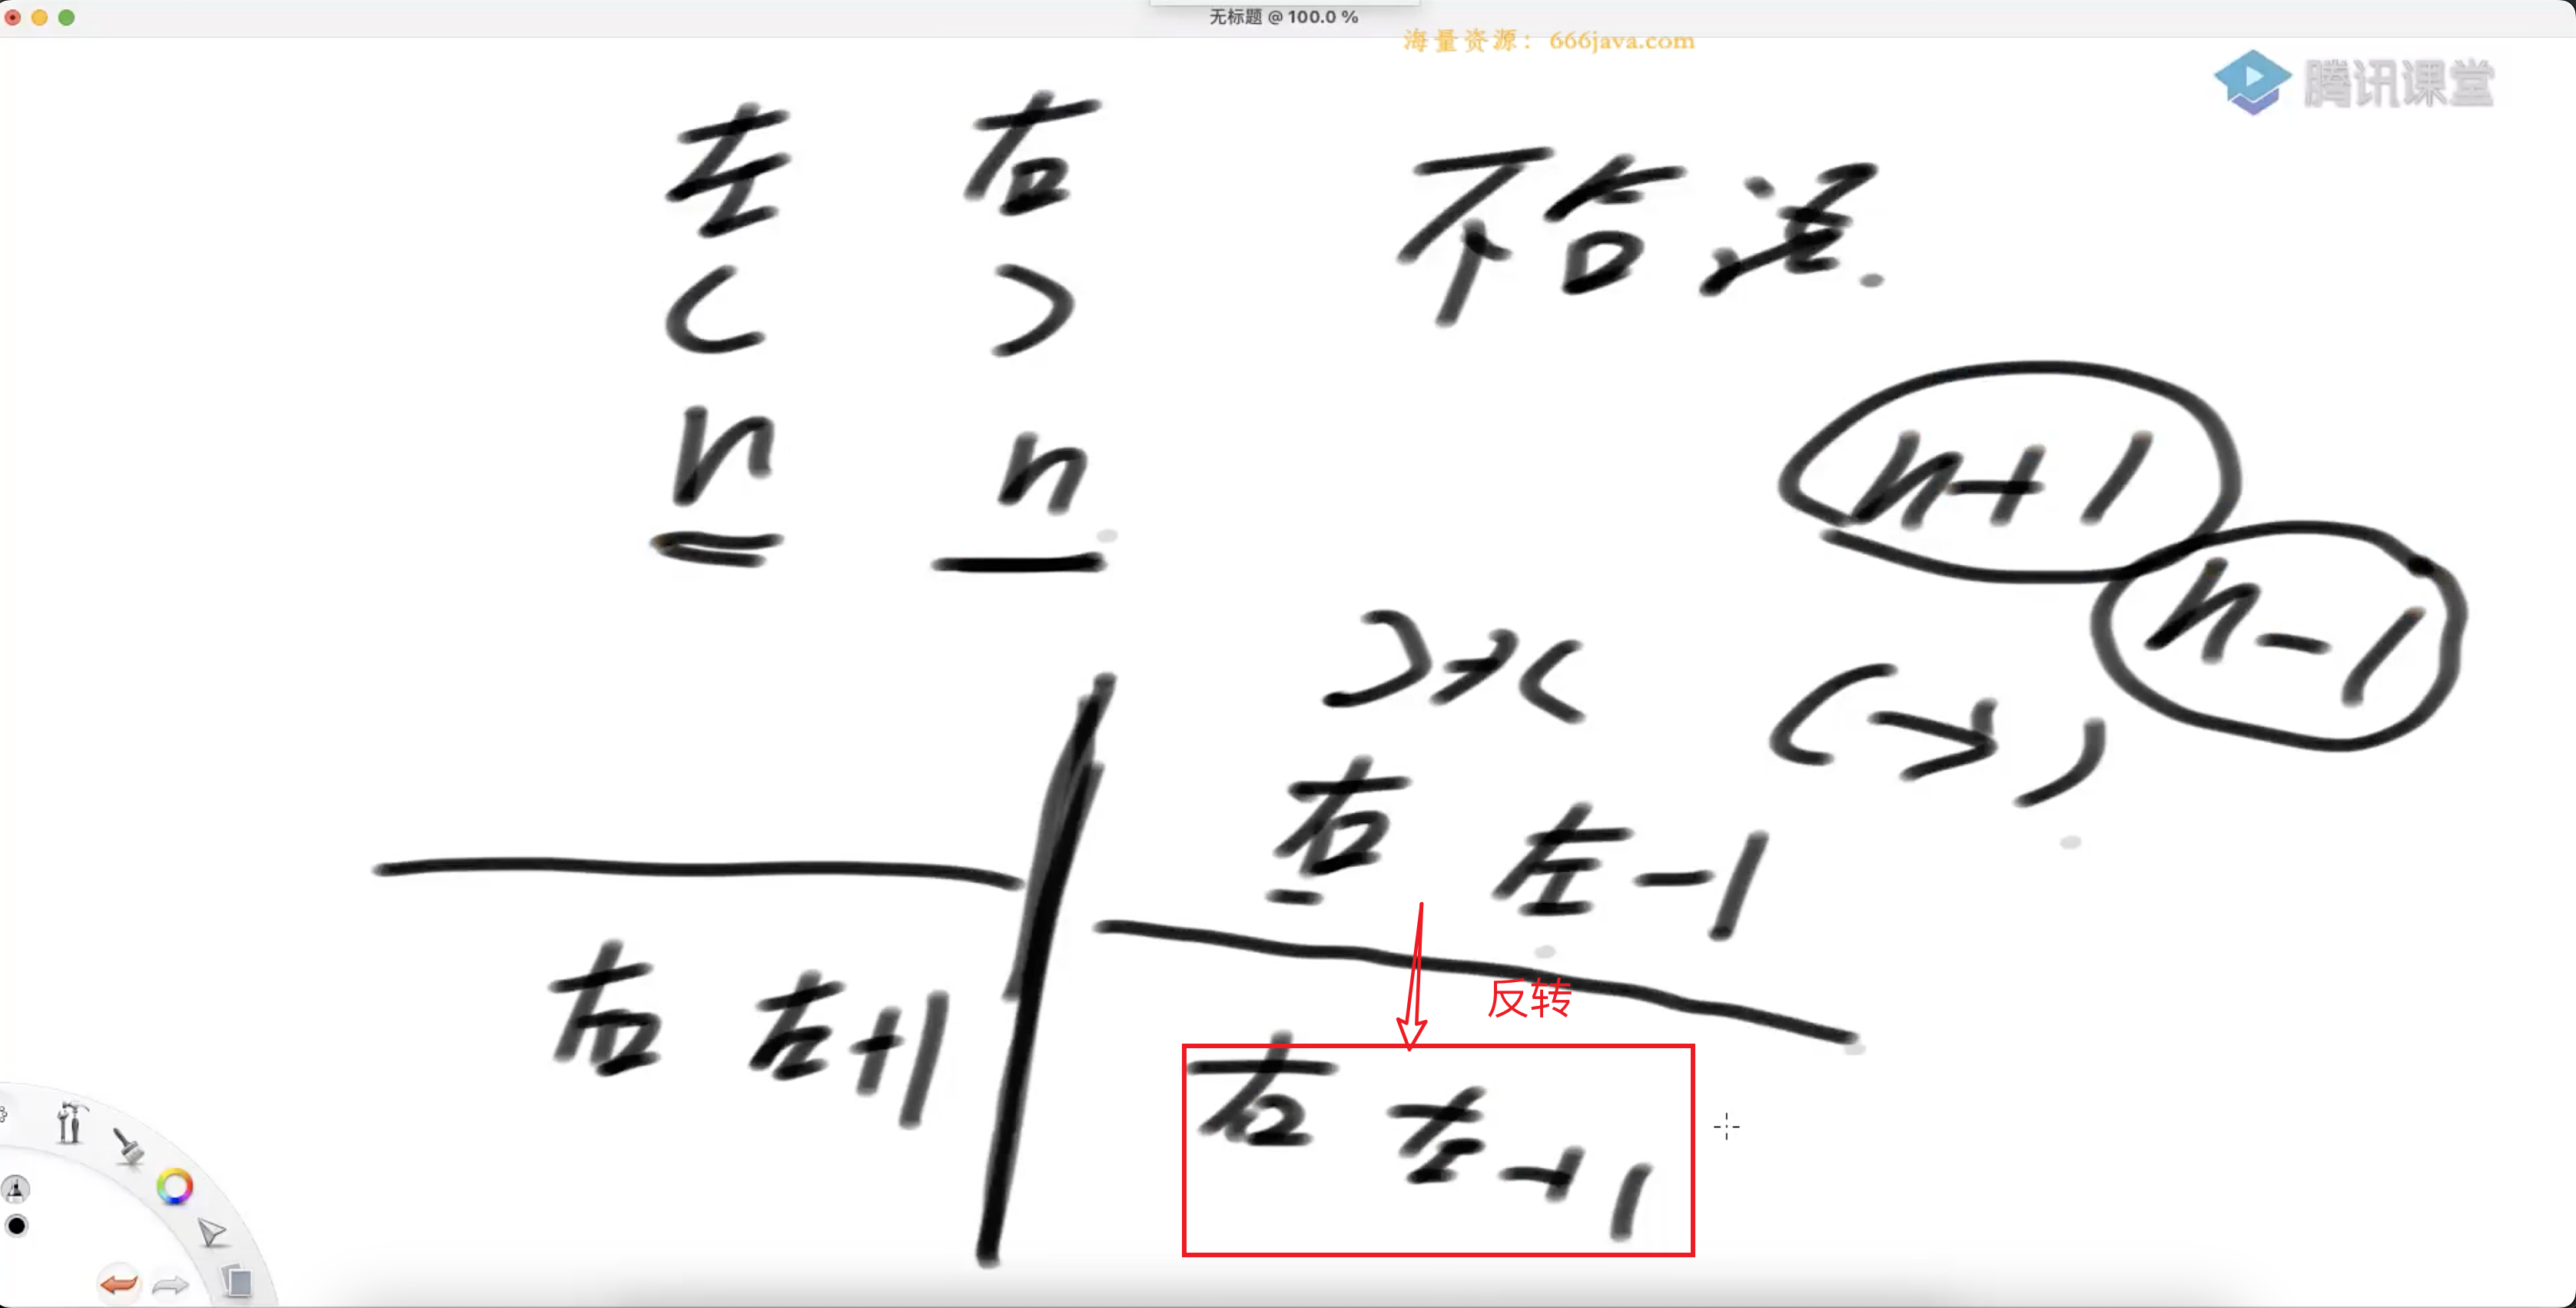 无标题 @ 100.0 %
海量资源：666java.com
腾讯课堂
左 右 不合法.
( )
n n
n+1
n-1
( → )
右 左-1
反转
右 左+1
右 左+1